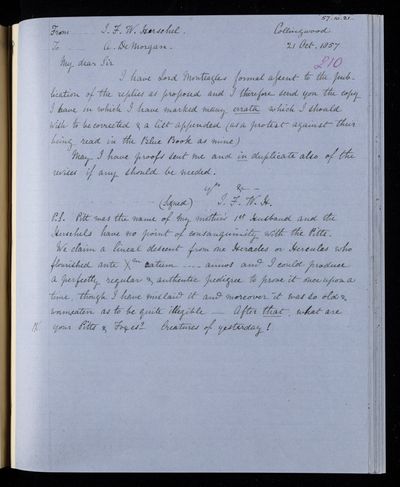 57.10.21.
From .... J. F. W. Herschel. Collingwood
To .... A. De Morgan. 21 Oct. 1857
£10
My dear Sir
I have Lord Monteagles formal assent to the pub-
lication of the replies as proposed and I therefore send you the copy
I have in which I have marked many errata which I should
wish to be corrected & a list appended (as a protest against their
being read in the Blue Book as mine)
May I have proofs sent me and in duplicate also of the
revises if any should be needed.
yrs &c -
(Signed) J. F. W. H.
P.S. Pitt was the name of my mother's 1st Husband and the
Herschels have no point of consanguinity with the Pitts.
We claim a lineal descent from one Heracles or Hercules who
flourished ante Xtum natum .... annos and I could produce
a perfectly regular & authentic pedigree to prove it once upon a
time, though I have mislaid it and moreover it was so old &
wormeaten as to be quite illegible — After that, what are
your Pitts & Foxes? Creatures of yesterday!